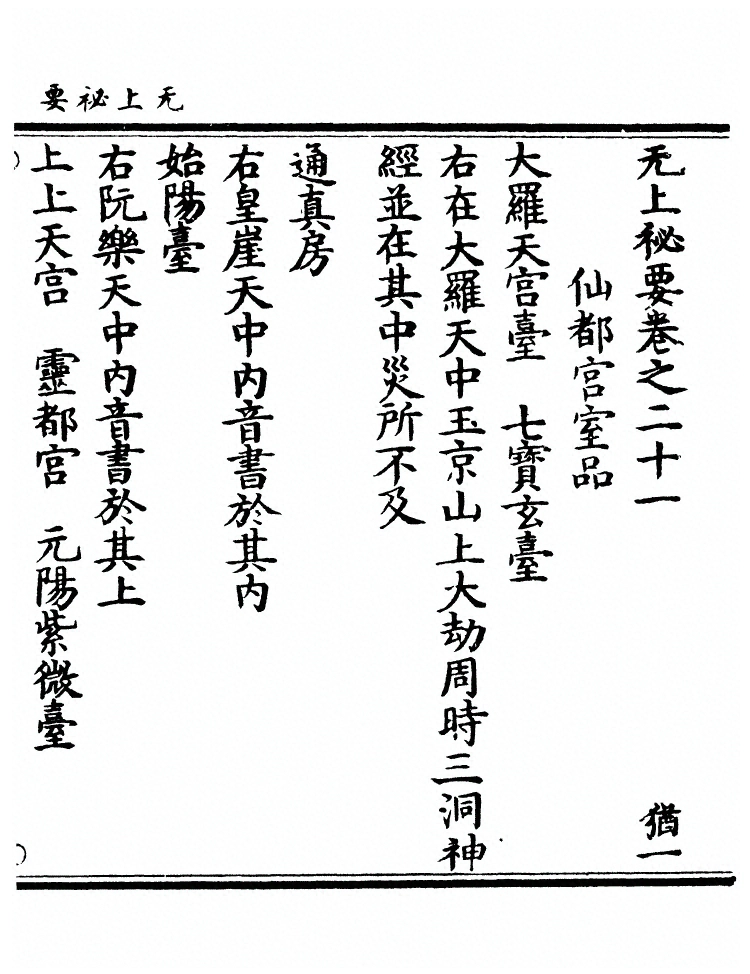 无上秘要
无上秘要卷之二十一 猶一
仙都宫室品
大羅天宫臺 七寶玄臺
右在大羅天中玉京山上大劫周時三洞神
經並在其中災所不及
通真房
右皇崖天中内音書於其内
始陽臺
右阮樂天中内音書於其上
上上天宫 靈都宫 元陽紫微臺